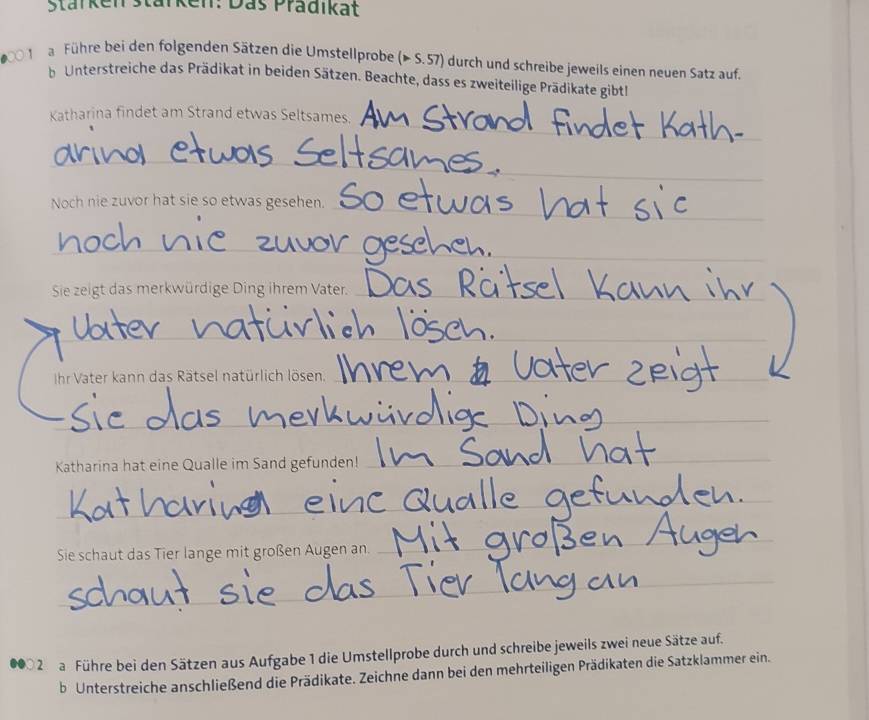 Stärken stärken: Das Prädikat
1 a Führe bei den folgenden Sätzen die Umstellprobe (▸ S. 57) durch und schreibe jeweils einen neuen Satz auf.
b Unterstreiche das Prädikat in beiden Sätzen. Beachte, dass es zweiteilige Prädikate gibt!
Katharina findet am Strand etwas Seltsames. Am Strand findet Kath-
arina etwas Seltsames.
Noch nie zuvor hat sie so etwas gesehen. So etwas hat sie
noch nie zuvor gesehen.
Sie zeigt das merkwürdige Ding ihrem Vater. Das Rätsel kann ihr
Vater natürlich lösen.
Ihr Vater kann das Rätsel natürlich lösen. Ihrem Vater zeigt
Sie das merkwürdige Ding
Katharina hat eine Qualle im Sand gefunden! Im Sand hat
Katharina eine Qualle gefunden.
Sie schaut das Tier lange mit großen Augen an. Mit großen Augen
schaut sie das Tier lang an
2 a Führe bei den Sätzen aus Aufgabe 1 die Umstellprobe durch und schreibe jeweils zwei neue Sätze auf.
b Unterstreiche anschließend die Prädikate. Zeichne dann bei den mehrteiligen Prädikaten die Satzklammer ein.